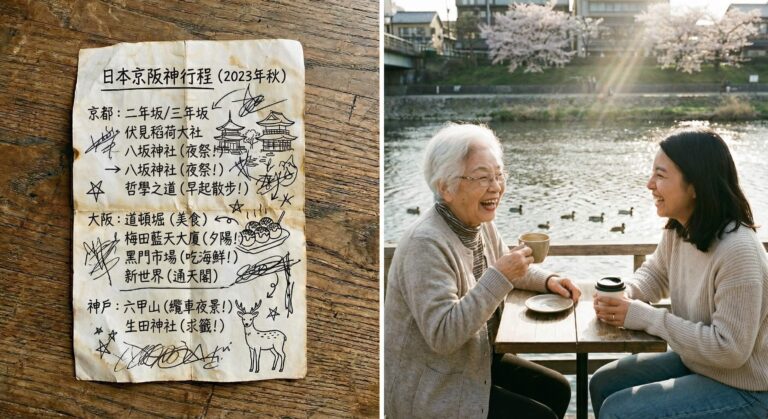 日本京阪神行程 (2023年秋)
京都：二年坂/三年坂
伏見稻荷大社
八坂神社 (夜祭!)
→ 八坂神社 (夜祭!)
哲學之道 (早起散步!)
大阪：道頓堀 (美食)
梅田藍天大廈 (夕陽!)
黑門市場 (吃海鮮!)
新世界 (通天閣)
神戶：六甲山 (纜車夜景!)
生田神社 (求籤!)